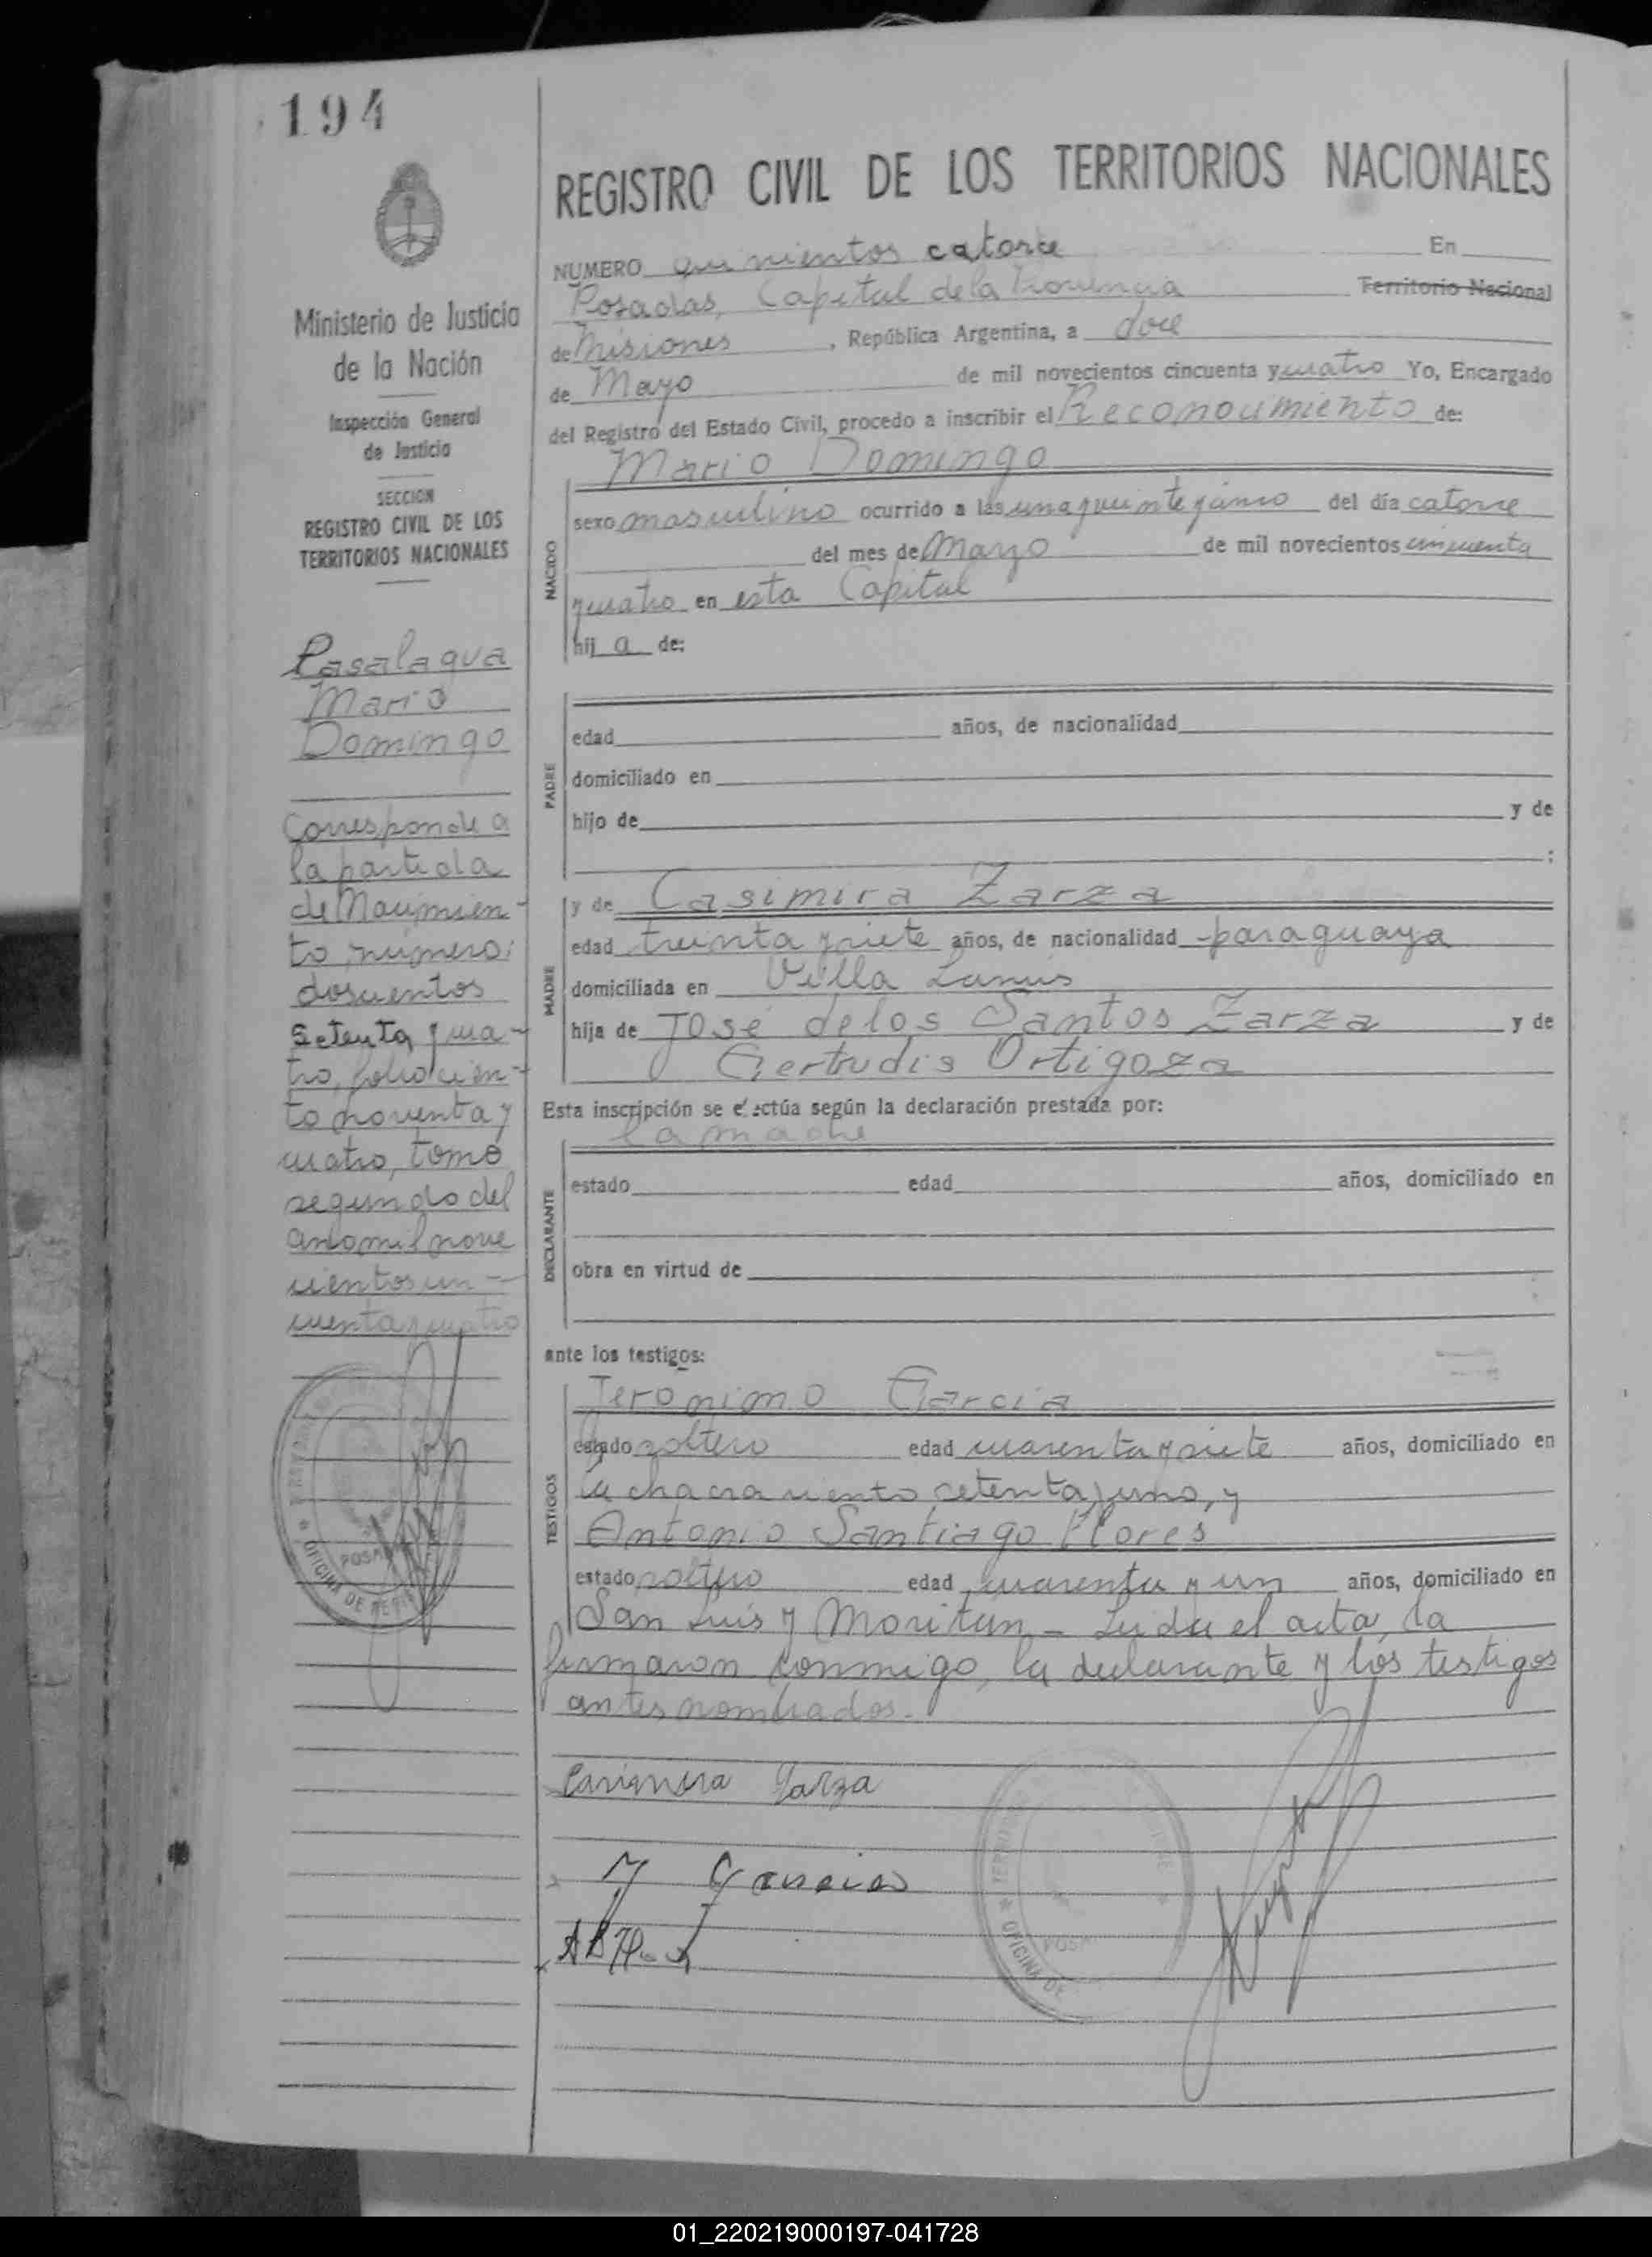 194
REGISTRO CIVIL DE LOS TERRITORIOS NACIONALES
NUMERO quinientos catorce En
Posadas, Capital de la Provincia Territorio Nacional
de Misiones, República Argentina, a doce
de Mayo de mil novecientos cincuenta y cuatro Yo, Encargado
del Registro del Estado Civil, procedo a inscribir el Reconocimiento de:
Mario Domingo
NACIDO
sexo masculino ocurrido a las una y veinte y cinco del día catorce
del mes de Mayo de mil novecientos cincuenta
y cuatro en esta Capital
hij a de:
PADRE
edad años, de nacionalidad
domiciliado en
hijo de y de
:
MADRE
y de Casimira Zarza
edad treinta y siete años, de nacionalidad paraguaya
domiciliada en Villa Lanus
hija de José de los Santos Zarza y de
Gertrudis Ortigoza
Esta inscripción se efectúa según la declaración prestada por:
la madre
DECLARANTE
estado edad años, domiciliado en
obra en virtud de
ante los testigos:
TESTIGOS
Jeronimo Garcia
estado soltero edad cuarenta y siete años, domiciliado en
la chacra ciento setenta y uno, y
Antonio Santiago Flores
estado soltero edad cuarenta y un años, domiciliado en
San Luis y Moritan - Leída el acta, la
firmaron conmigo, la declarante y los testigos
antes nombrados.
Casimira Zarza
J Garcia
Ministerio de Justicia
de la Nación
Inspección General
de Justicia
SECCION
REGISTRO CIVIL DE LOS
TERRITORIOS NACIONALES
Pasalaqua
Mario
Domingo
Corresponde a
la partida
de Nacimien-
to número:
doscientos
setenta y cua-
tro, folio cien-
to noventa y
cuatro, tomo
segundo del
año mil nove
cientos cin-
cuenta y cuatro
OFICINA DE
POSA
TERRITOR
OFICINA DE
POSA
01_220219000197-041728